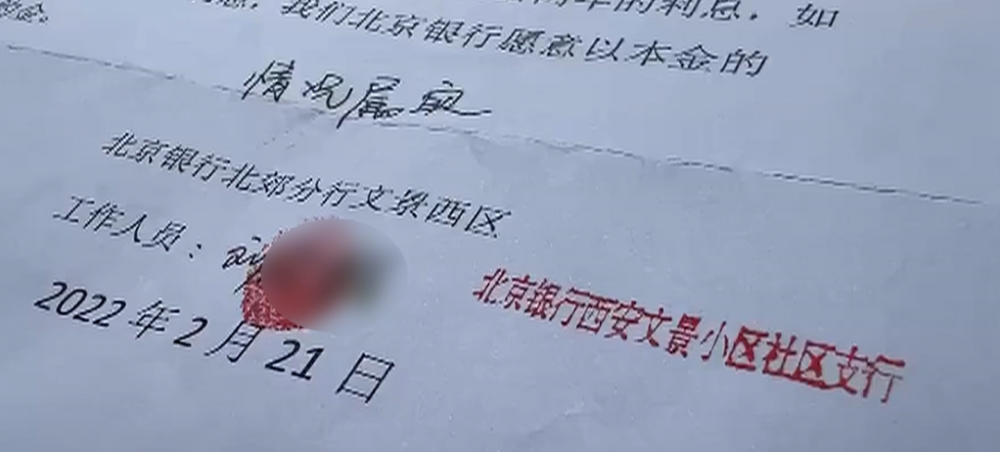 的利息，如
我们北京银行愿意以本金的
情况属实
北京银行北郊分行文景西区
工作人员：
北京银行西安文景小区社区支行
2022年2月21日